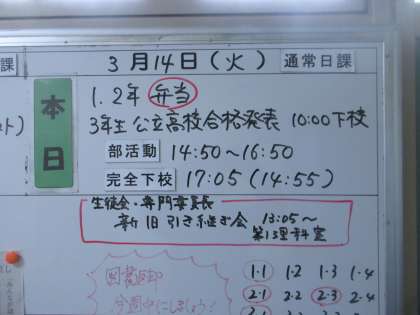 課
3月14日(火) 通常日課
本日
1.2年 弁当
3年生 公立高校合格発表 10:00下校
部活動 14:50〜16:50
完全下校 17:05(14:55)
生徒会・専門委員長
新旧引き継ぎ会 13:05〜
第1理科室
今週中にしましょう!
1-1 1-2 1-3 1-4
2-1 2-2 2-3 2-4